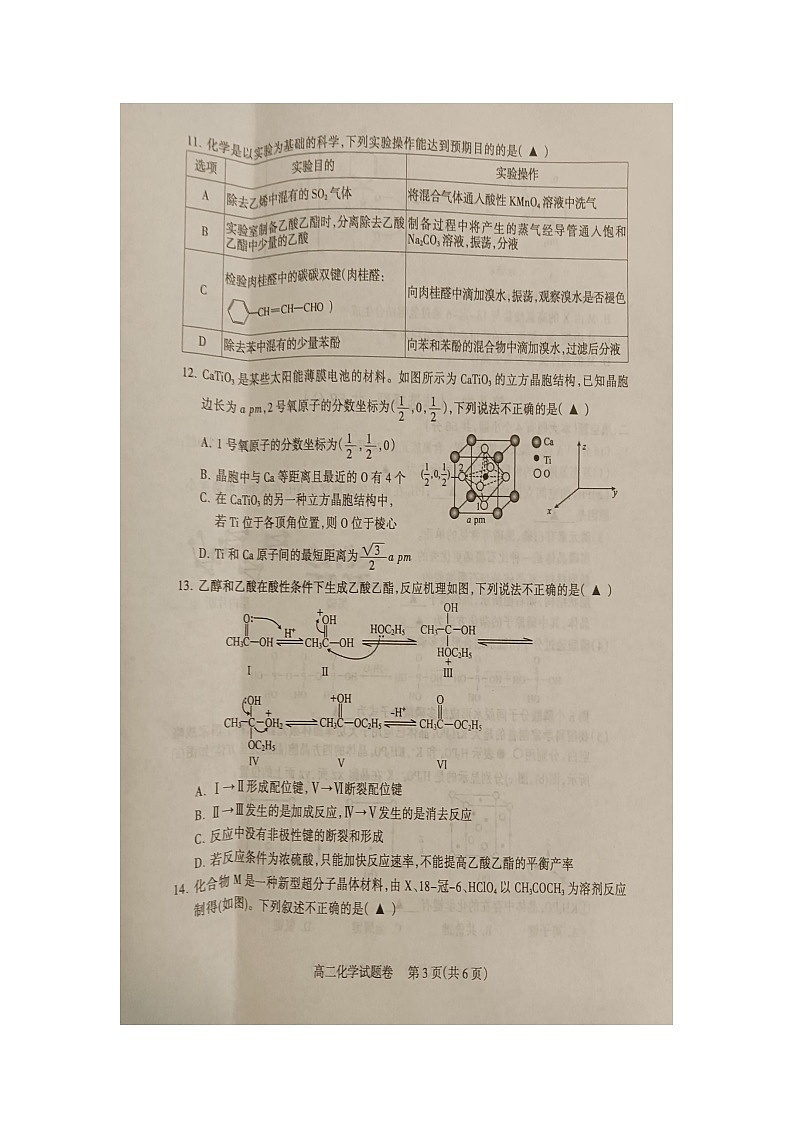 11. 化学是以实验为基础的科学,下列实验操作能达到预期目的的是( ▲ )
选项 实验目的 实验操作
A 除去乙烯中混有的SO₂气体 将混合气体通入酸性KMnO₄溶液中洗气
B 实验室制备乙酸乙酯时,分离除去乙酸乙酯中少量的乙酸 制备过程中将产生的蒸气经导管通入饱和Na₂CO₃溶液,振荡,分液
C 检验肉桂醛中的碳碳双键(肉桂醛: CH=CH—CHO ) 向肉桂醛中滴加溴水,振荡,观察溴水是否褪色
D 除去苯中混有的少量苯酚 向苯和苯酚的混合物中滴加溴水,过滤后分液
12. CaTiO₃是某些太阳能薄膜电池的材料。如图所示为CaTiO₃的立方晶胞结构,已知晶胞
边长为a pm,2号氧原子的分数坐标为(1/2,0,1/2),下列说法不正确的是( ▲ )
A. 1号氧原子的分数坐标为(1/2,1/2,0)
B. 晶胞中与Ca等距离且最近的O有4个
C. 在CaTiO₃的另一种立方晶胞结构中,
若Ti位于各顶角位置,则O位于棱心
D. Ti和Ca原子间的最短距离为√3/2 a pm
(1/2,0,1/2) 2
1
a pm
Ca
Ti
O
z
y
x
13. 乙醇和乙酸在酸性条件下生成乙酸乙酯,反应机理如图,下列说法不正确的是( ▲ )
O: CH₃C—OH H⁺ +OH CH₃C—OH HOC2H₅ OH CH₃—C—OH HOC2H₅ +
Ⅰ Ⅱ Ⅲ
:OH CH₃—C—OH₂ + OC2H₅ +OH CH₃C—OC2H₅ -H⁺ O CH₃C—OC2H₅
Ⅳ Ⅴ Ⅵ
A. Ⅰ→Ⅱ形成配位键,Ⅴ→Ⅵ断裂配位键
B. Ⅱ→Ⅲ发生的是加成反应,Ⅳ→Ⅴ发生的是消去反应
C. 反应中没有非极性键的断裂和形成
D. 若反应条件为浓硫酸,只能加快反应速率,不能提高乙酸乙酯的平衡产率
14. 化合物M是一种新型超分子晶体材料,由X、18-冠-6、HClO₄以CH₃COCH₃为溶剂反应
制得(如图)。下列叙述不正确的是( ▲ )
高二化学试题卷 第3页(共6页)